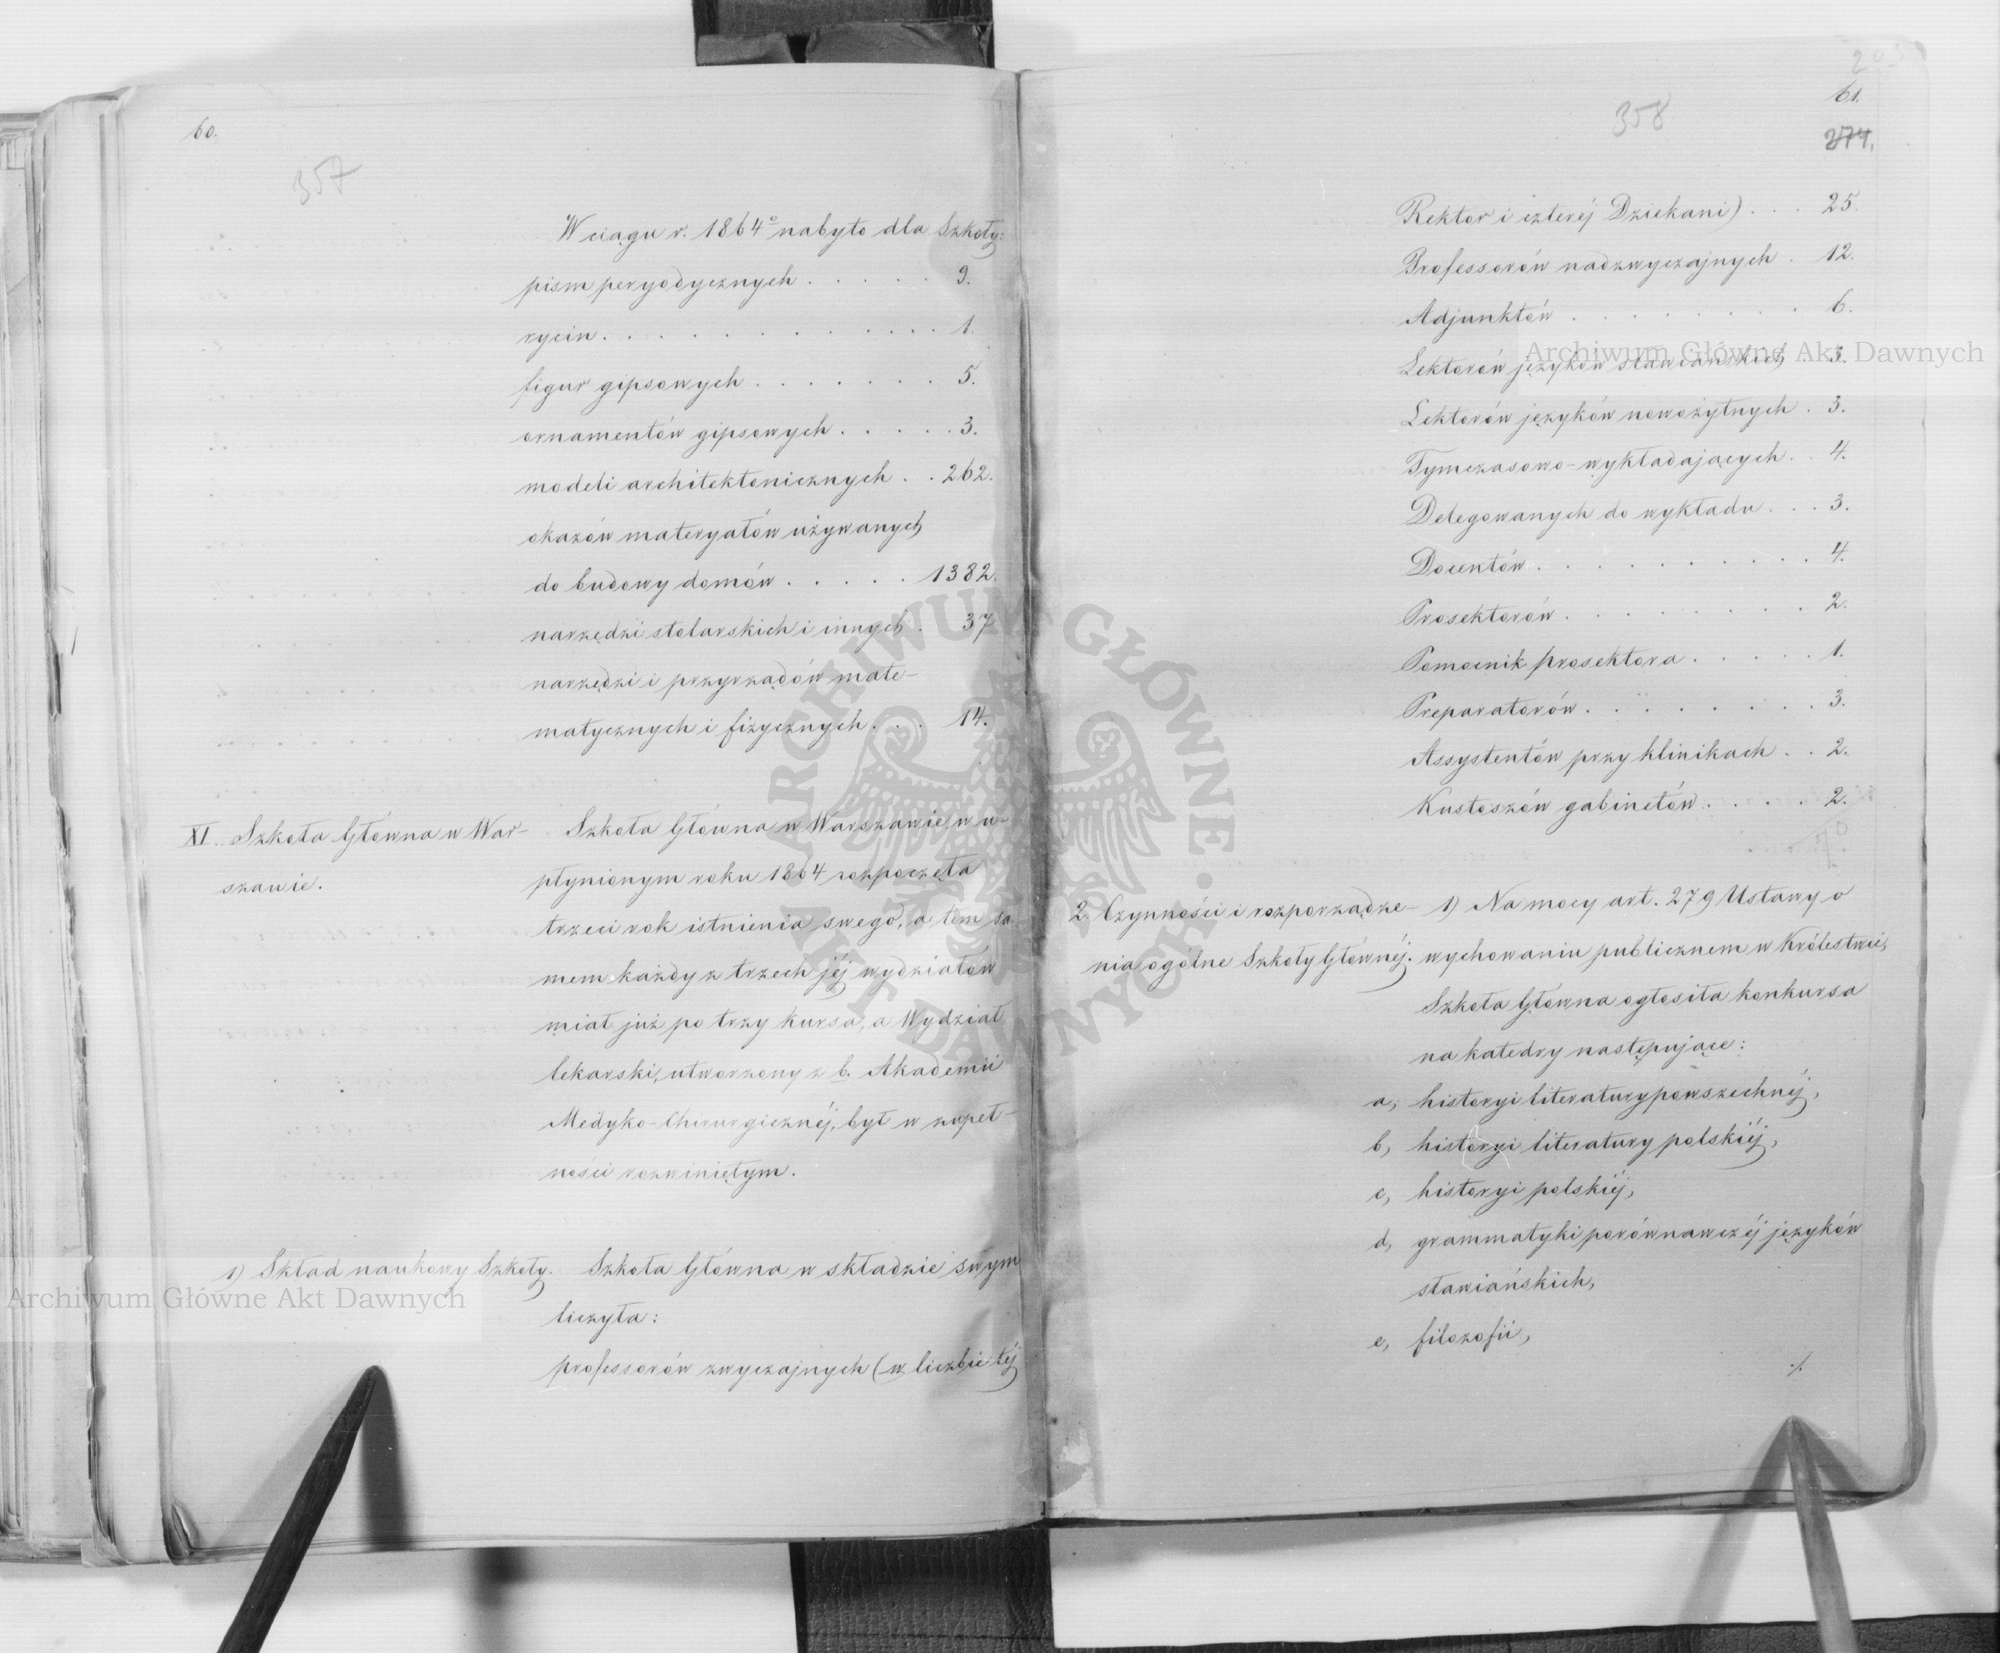 60.
357
W ciągu r. 1864º nabyto dla Szkoły:
pism peryodycznych . . . . . 9.
rycin . . . . . . . . . . . . . 1.
figur gipsowych . . . . . . . 5.
ornamentów gipsowych . . . . . 3.
modeli architektonicznych . . 262.
okazów materyałów używanych
do budowy domów . . . . . 1382.
narzędzi stolarskich i innych . 37
narzędzi i przyrządów mate-
matycznych i fizycznych . . . 14.
XI. Szkoła Główna w War-
szawie.
Szkoła Główna w Warszawie, w u-
płynionym roku 1864 rozpoczęła
trzeci rok istnienia swego, a tem sa
mem każdy z trzech jéj wydziałów
miał już po trzy kursa, a Wydział
lekarski, utworzony z b. Akademii
Medyko-Chirurgicznéj, był w zupeł-
ności rozwiniętym.
1) Skład naukowy Szkoły.
Szkoła Główna w składzie swym
liczyła:
professorów zwyczajnych (w liczbie téj
61.
358
274.
Rektor i czteréj Dziekani) . . . 25.
Professorów nadzwyczajnych . 12.
Adjunktów . . . . . . . . 6.
Lektorów języków sławiańskich 3.
Lektorów języków nowożytnych . 3.
Tymczasowo-wykładających . . 4.
Delegowanych do wykładu . . . 3.
Docentów . . . . . . . . . . 4.
Prosektorów . . . . . . . . 2.
Pomocnik prosektora . . . . . 1.
Preparatorów . . . . . . . . 3.
Assystentów przy klinikach . . 2.
Kustoszów gabinetów . . . . . 2.
70
2. Czynności i rozporządze-
nia ogólne Szkoły Głównéj.
1) Na mocy art. 279 Ustawy o
wychowaniu publicznem w Królestwie,
Szkoła Główna ogłosiła konkursa
na katedry następujące:
a, historyi literatury powszechnéj,
b, historyi literatury polskiéj,
c, historyi polskiéj,
d, grammatyki porównawczéj języków
sławiańskich,
e, filozofii,
./.
Archiwum Główne Akt Dawnych
Archiwum Główne Akt Dawnych
ARCHIWUM GŁÓWNE AKT DAWNYCH